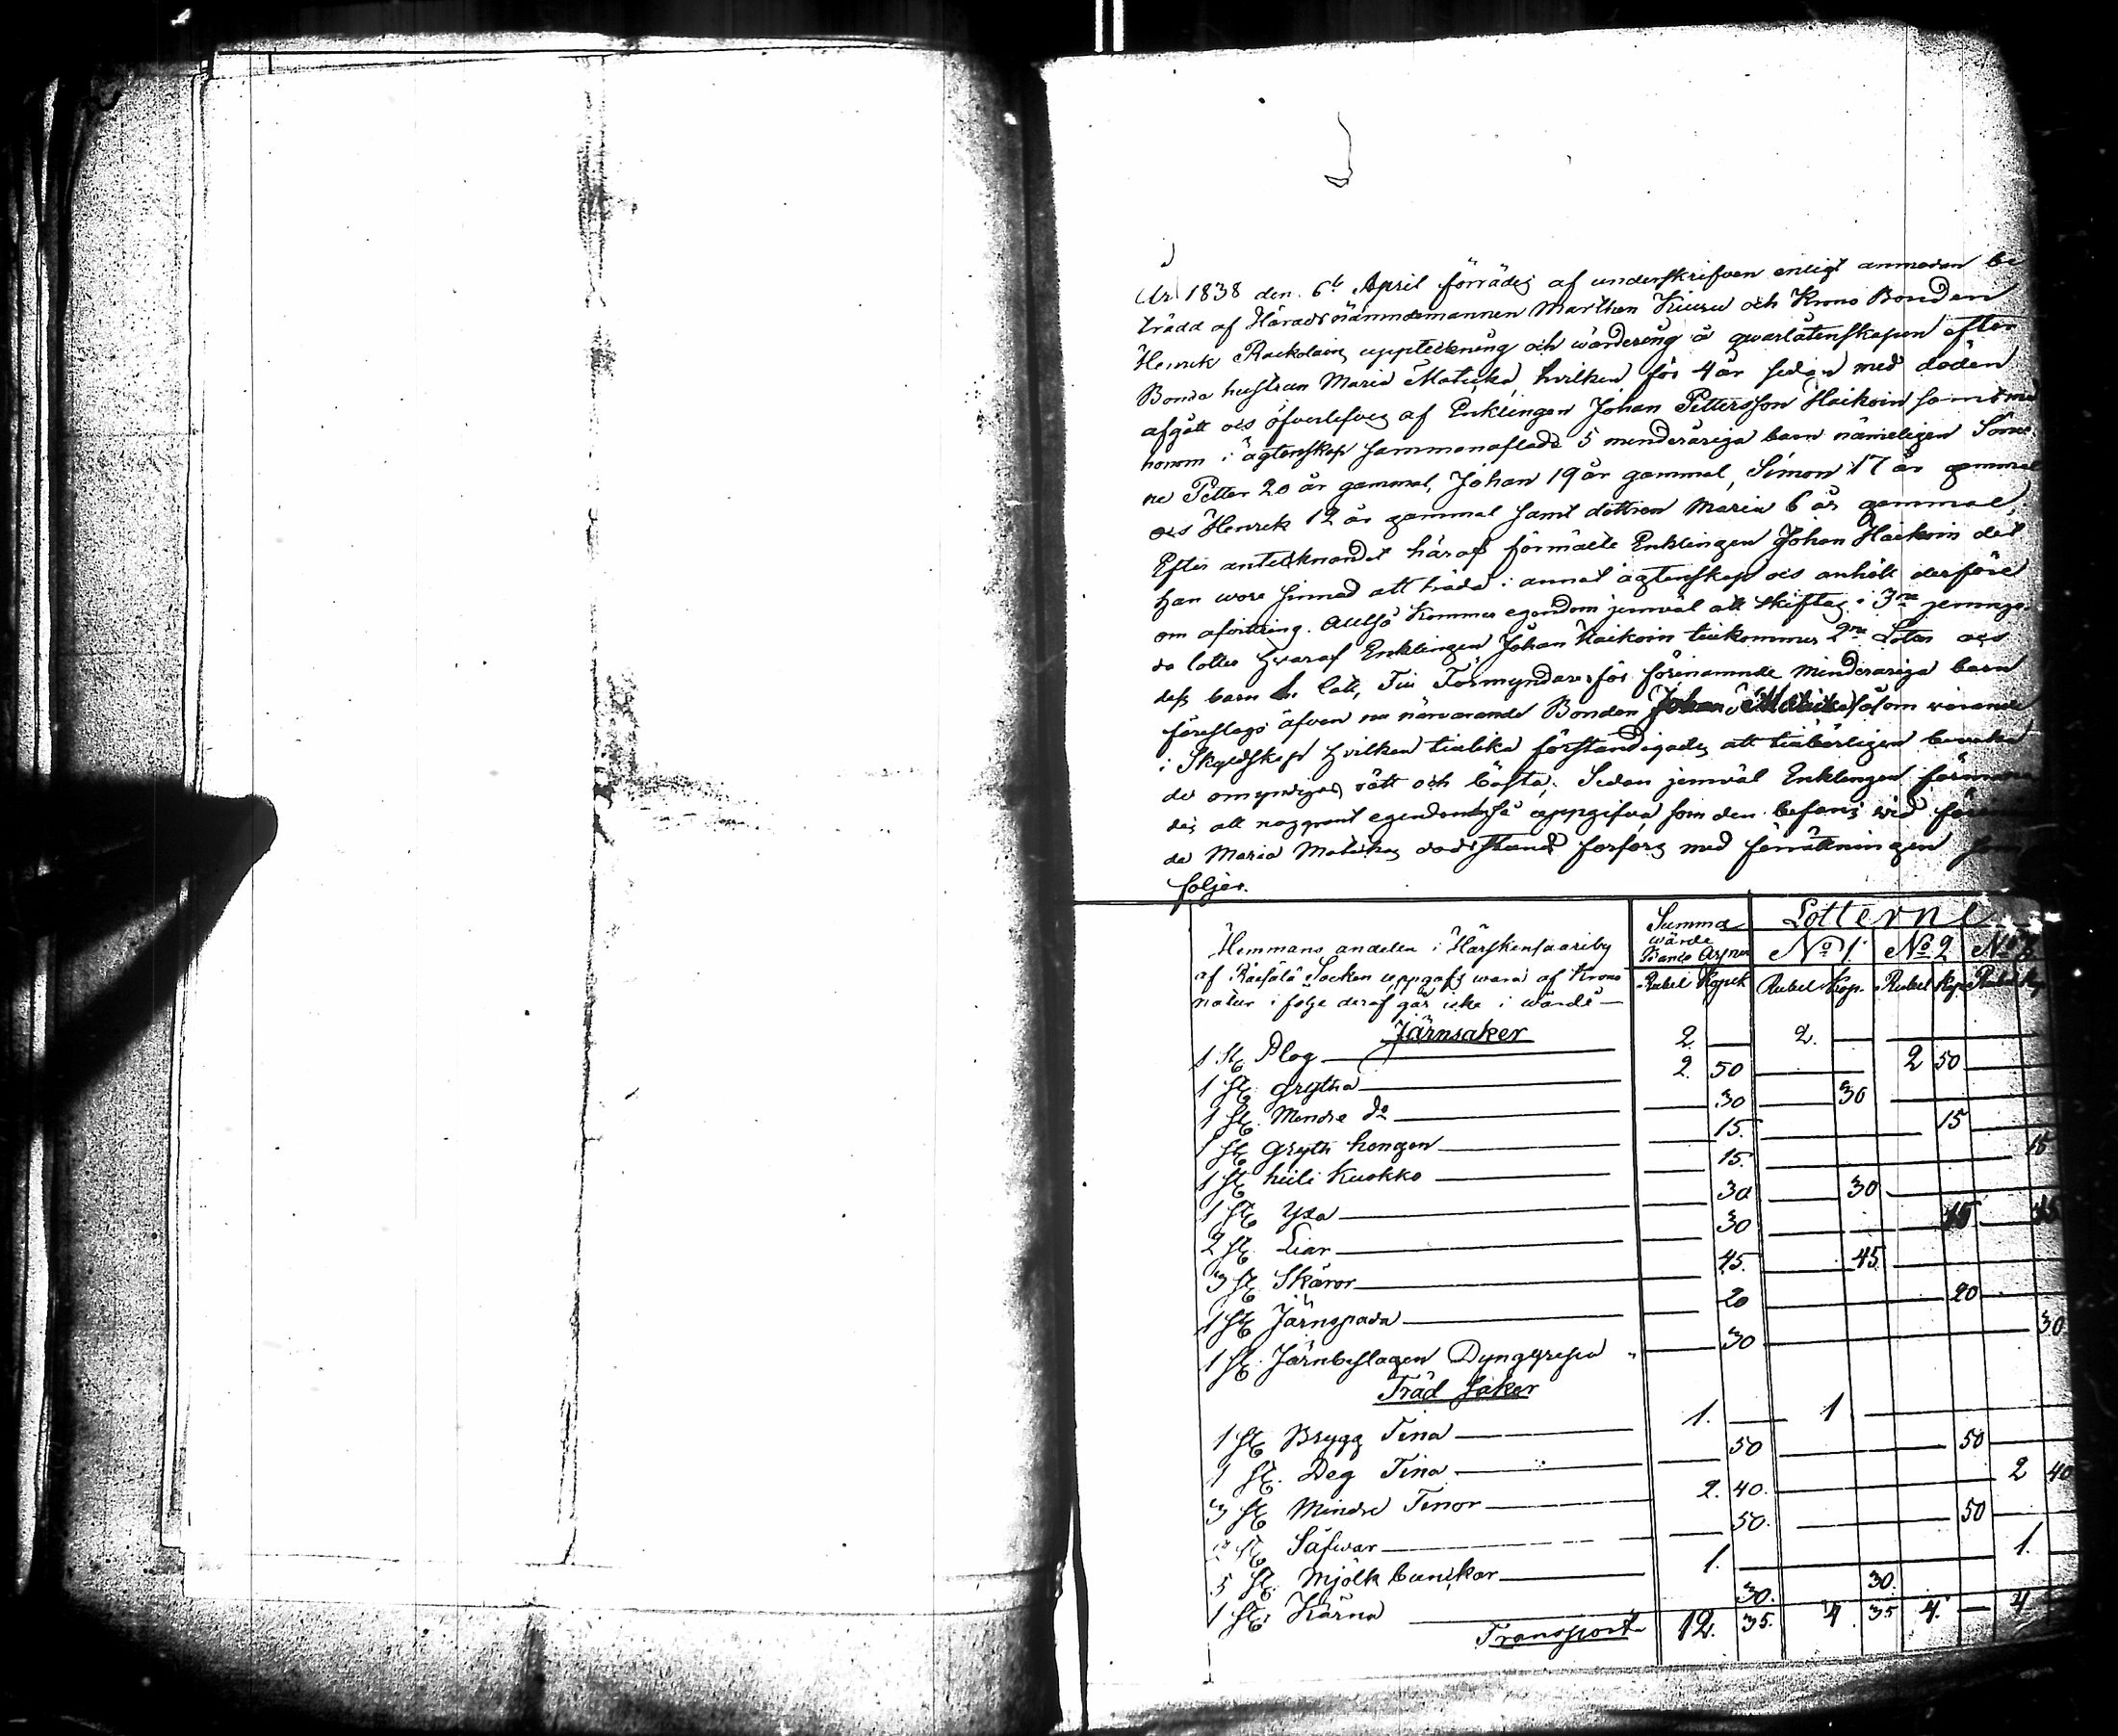 År 1838 den 6te April förrädes af underskrifven enligt anmodan be
trädd af Häradsnämndemannen Marthen Kiuru och Krono Bonden
Henrik Rackolain uppteckning och wärdering å qwarlåtenskapen efter
Bonde hustrun Maria Maticka, hvilken för 4 år sedan med döden
afgått och öfverlefves af Enklingen Johan Pettersson Haikoin samt med
honom i ägtenskap sammanaflade 5 menderåriga barn nämeligen Söner
ne Petter 20 år gammal, Johan 19 år gammal, Simon 17 år gammal
och Henrik 12 år gammal samt dottren Maria 6 år gammal,
Efter antecknandet häraf förmälte Enklingen Johan Haikoin det
han wore sinnad att träda i annat ägtenskap och anhölt derföre
om afvittring. Alltså kommer egendom jemväl att skiftas i 3ne jemngo
da lotter hvaraf Enklingen Johan Haikoin tillkommer 2ne Lotter och
dess barn 1. lott, Till Förmyndare för förenämnde Minderåriga barn
föreslogs äfven nu närvarande Bonden Johan Maticka såsom varande
i Skyldskap hvilken tillika förständigades att tillbörligen bevaka
de omyndigas rätt och bästa; Sedan jemväl Enklingen förmana
des att noggrant egendomen så uppgifva som den befans vid föremn
de Maria Matickas dödstand förförs med förrättningen som
följer.
Hemmans andelen i Härskensaari by
af Räisälä Socken uppgafs wara af Krono
natur i följe deraf går icke i wärde —
Summa wärde Banco Assign | Lotterne
No 1. | No 2 | No 3
Rubel Kopek | Rubel Kop. | Rubel Kop | Rubel Kop
Järnsaker
1 St. Plog — 2. — 2. —
1 St. Grytha — 2. 50 — 2 50
1 St. Mindre do — 30 — 30
1 St. Gryth hongen — 15. — 15
1 St. hiili Kuokko — 15. — 15
1 St. Yxa — 30 — 30
2 St. Liar — 30 — 15 — 15
3 St. Skäror — 45. — 45.
1 St. Järnspada — 20 — 20
1 St. Järnbeslagen Dynggrepa — 30 — 30
Träd saker
1 St. Brygg Tina — 1. — 1
1 St. Deg Tina — 50 — 50
3 St. Mindre Tinor — 2. 40. — 2 40
St. Såfwar — 50. — 50
5 St. Mjölk bunckar — 1. — 1.
1 St. Kärna — 30. — 30.
Transport 12. 35. 4 35 4. — 4